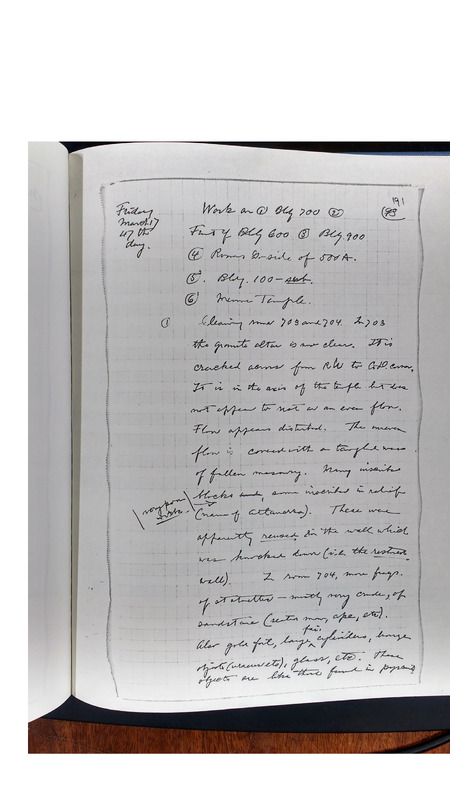 191
93
Friday
March 17
47th
day.
Work on ① Bldg 700 ②
First of Bldg 600 ③ Bldg. 900
④ Rooms D-side of 500 A.
⑤. Bldg. 100-
⑥ Temple.
① Clearing rooms 703 and 704. In 703
the granite altar is now clear. It is
cracked across from R W to corner.
It is in the axis of the temple but does
not appear to rest on an even floor.
Floor appears disturbed. The uneven
floor is covered with a tangled mass
of fallen masonry. Many inscribed
blocks used, some inscribed in relief
(name of Atlanersa). These were
apparently reused in the wall which
was knocked down (with the
wall). In room 704, more frags.
of statuettes — mostly very crude, of
sandstone (man, ape, etc).
Also gold foil, large fai. cylinders, bronze
objects (uraeus etc), glass, etc. These
objects are like those found in pyramid